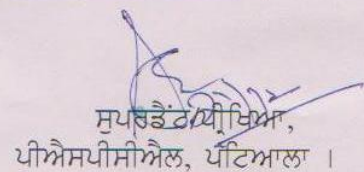 ਸੁਪਰਡੈਂਟ/ਪ੍ਰੀਖਿਆ,
ਪੀਐਸਪੀਸੀਐਲ, ਪਟਿਆਲਾ ।